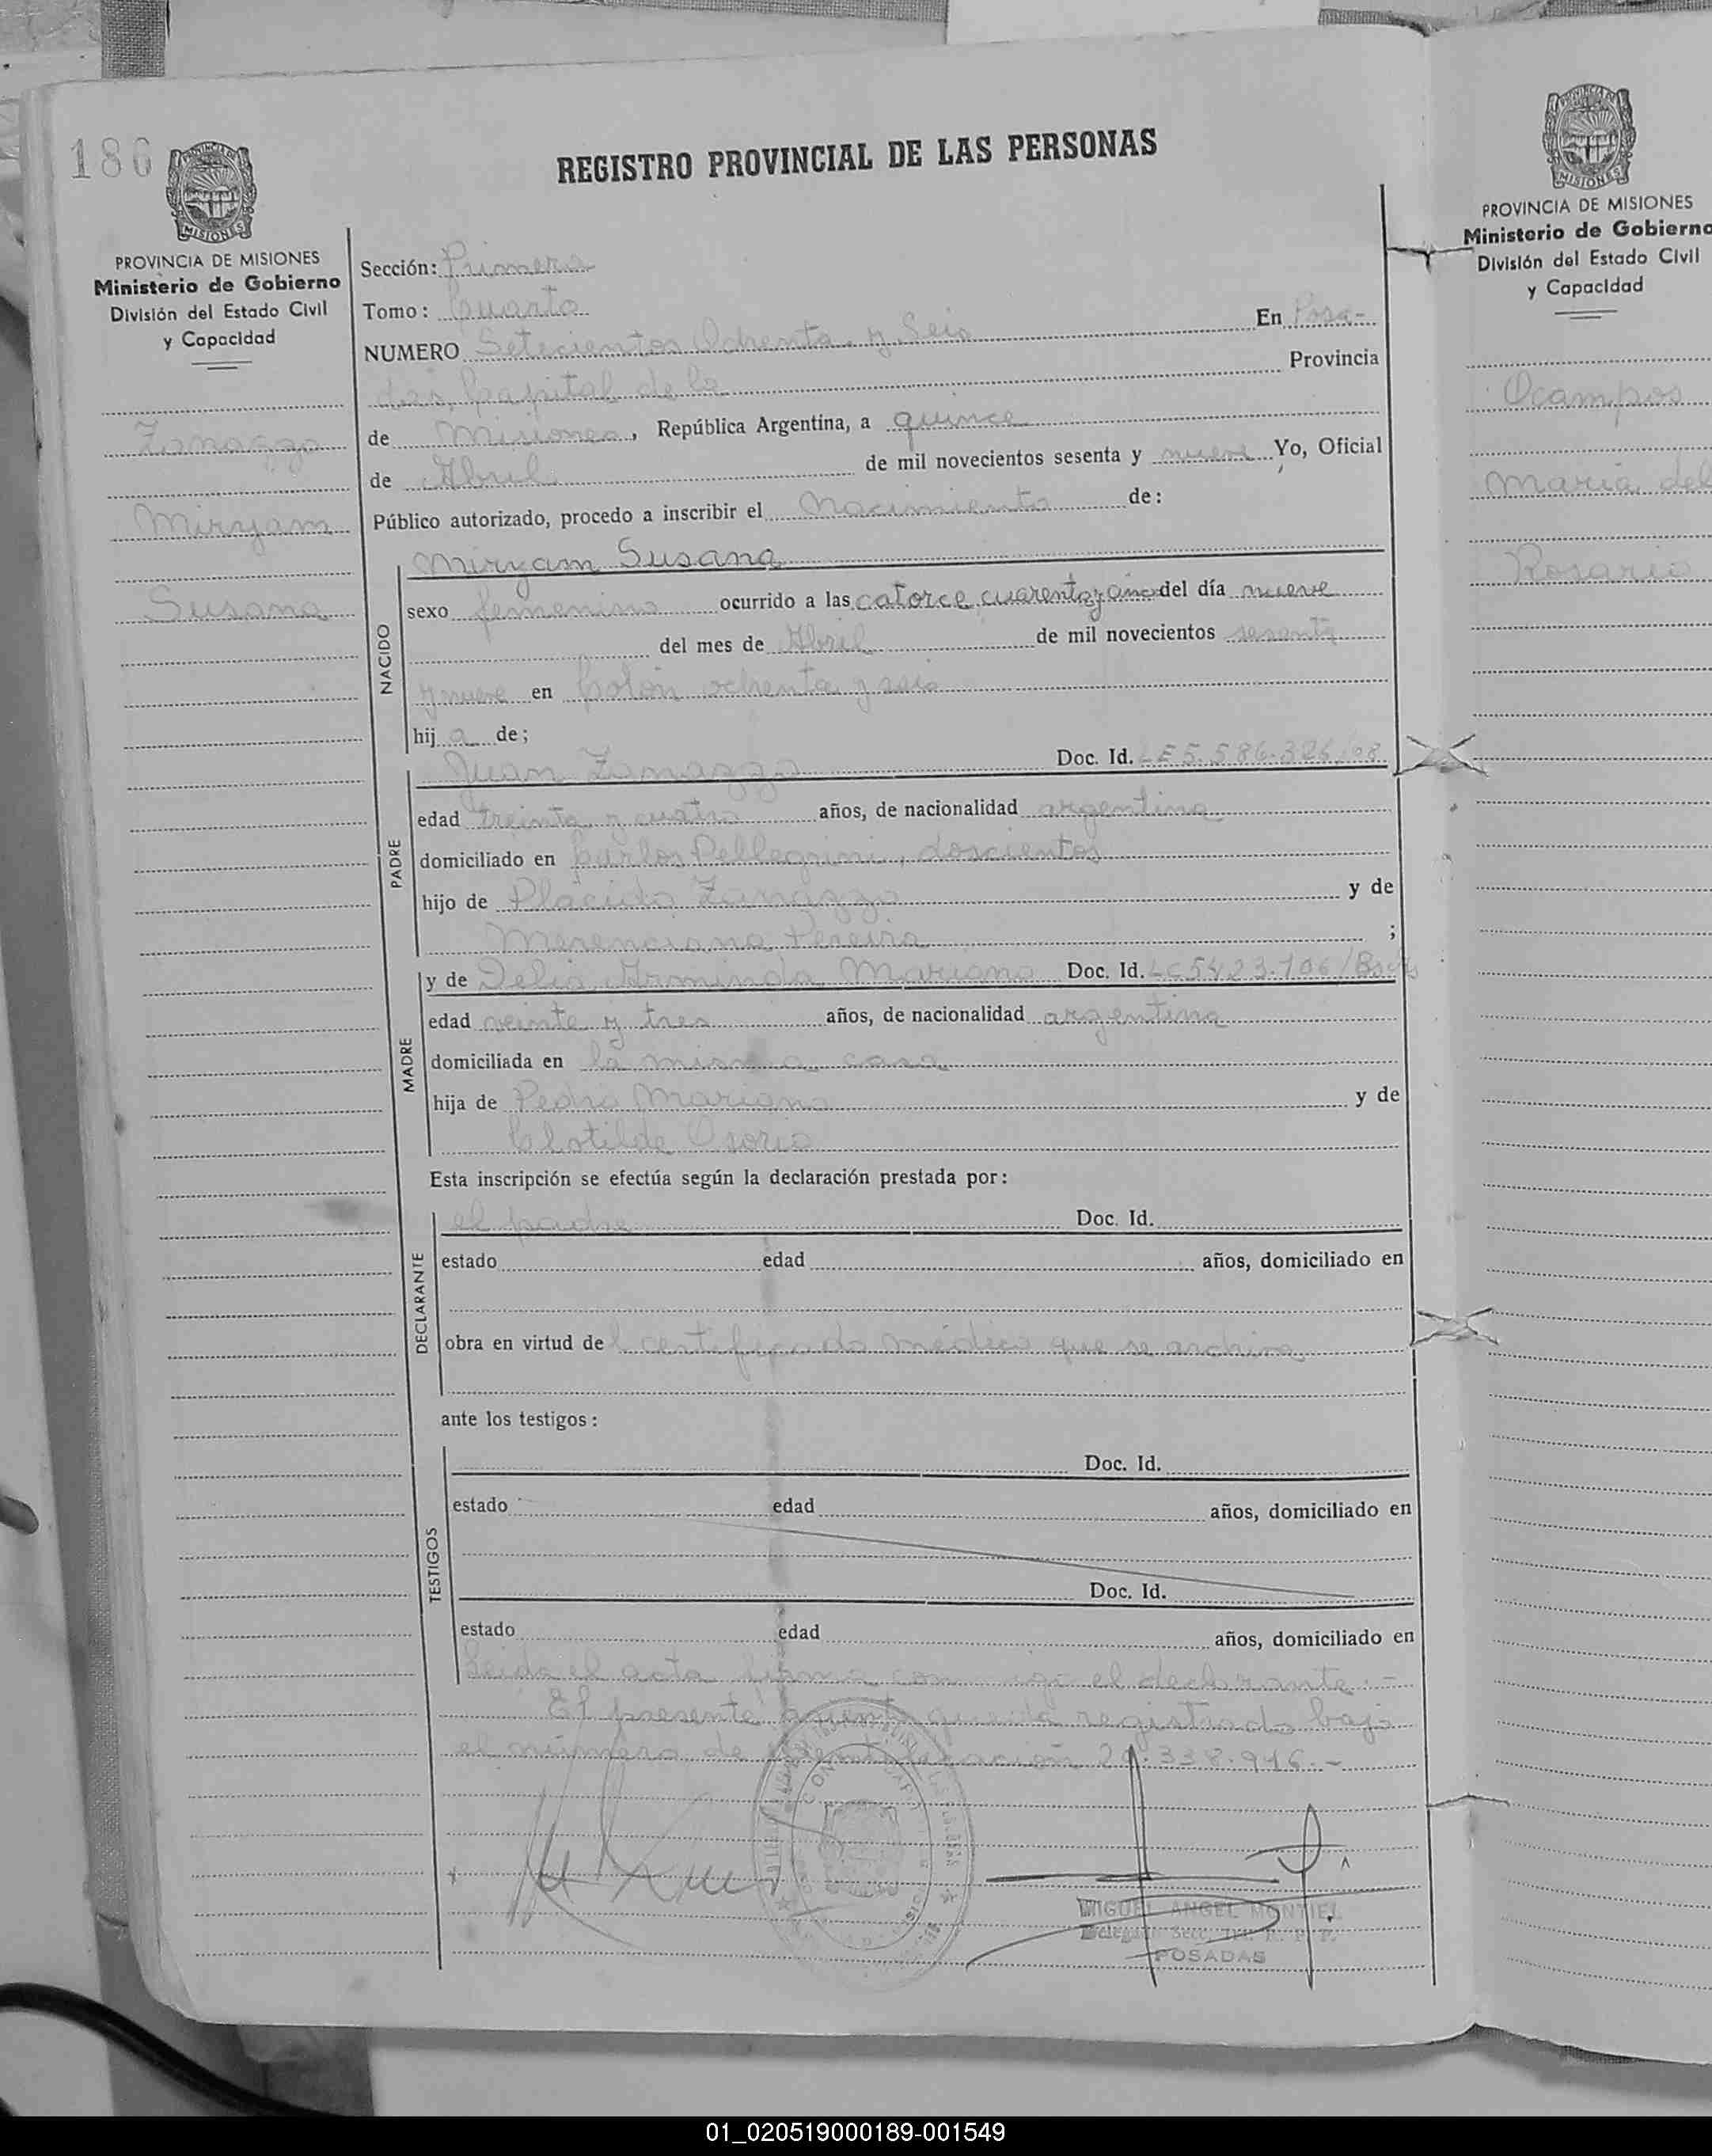 186
REGISTRO PROVINCIAL DE LAS PERSONAS
PROVINCIA DE MISIONES
Ministerio de Gobierno
División del Estado Civil
y Capacidad
Zanazzo
Miryam
Susana
Sección: Primera
Tomo: Cuarto
NUMERO Setecientos Ochenta y Seis En Posa-
das, Capital de la Provincia
de Misiones, República Argentina, a quince
de Abril de mil novecientos sesenta y nueve Yo, Oficial
Público autorizado, procedo a inscribir el Nacimiento de:
NACIDO
Miryam Susana
sexo femenino ocurrido a las catorce cuarenta y del día nueve
del mes de Abril de mil novecientos sesenta
y nueve en Colón ochenta y seis
hij a de;
PADRE
Juan Zanazzo Doc. Id. LE 5.586.326
edad treinta y cuatro años, de nacionalidad argentina
domiciliado en Carlos Pellegrini, doscientos
hijo de Plácido Zanazzo y de
Merenciana Pereira ;
MADRE
y de Delia Arminda Mariano Doc. Id. LC 5423.106
edad veinte y tres años, de nacionalidad argentina
domiciliada en la misma casa
hija de Pedro Mariano y de
Clotilde Osorio
Esta inscripción se efectúa según la declaración prestada por:
DECLARANTE
el padre Doc. Id.
estado edad años, domiciliado en
obra en virtud del certificado médico que se archiva
ante los testigos:
TESTIGOS
Doc. Id.
estado edad años, domiciliado en
Doc. Id.
estado edad años, domiciliado en
Leída el acta firma conmigo el declarante.-
El presente asiento queda registrado bajo
el número de identificación 20.338.946.-
MIGUEL ANGEL MONTIEL
Delegado Secc. R. P. P.
POSADAS
PROVINCIA DE MISIONES
Ministerio de Gobierno
División del Estado Civil
y Capacidad
Ocampos
Maria del
Rosario
01_020519000189-001549